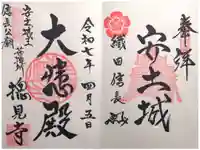 奉拝
安土城
織田信長
令和七年四月五日
大悲殿
安土城址
信長公廟
摠見寺